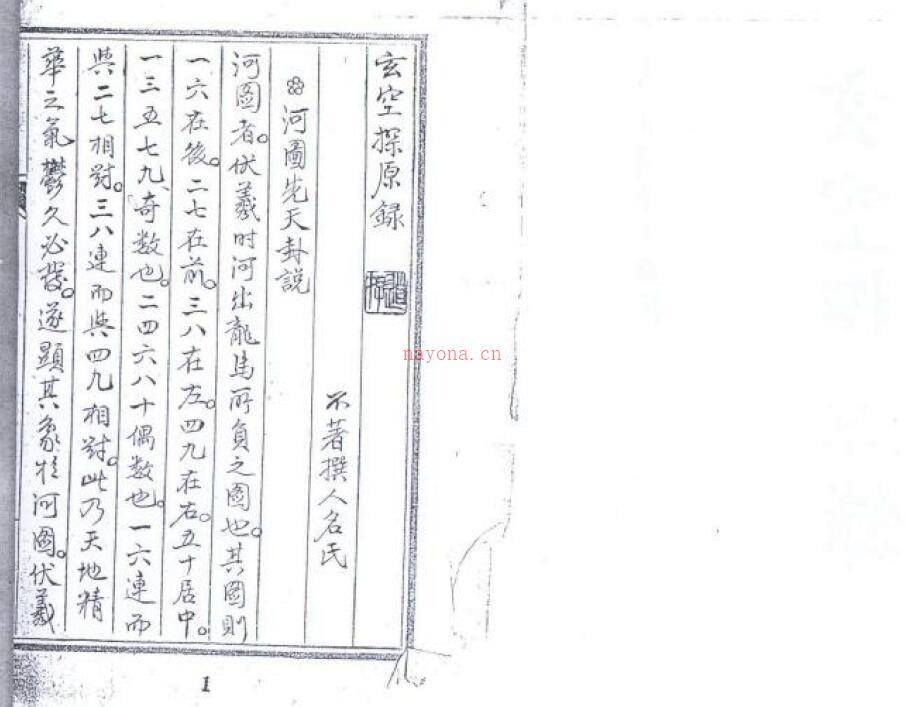 玄空探原録
不著撰人名氏
河圖先天卦説
河图者。伏羲时河出龍馬所負之图也。其图則
一六在後。二七在前。三八在左。四九在右。五十居中。
一三五七九、奇数也。二四六八十偶数也。一六連而
與二七相對。三八連而與四九相對。此乃天地精
華之氣鬱久必發。遂顯其象於河图。伏羲
nayona.cn
1